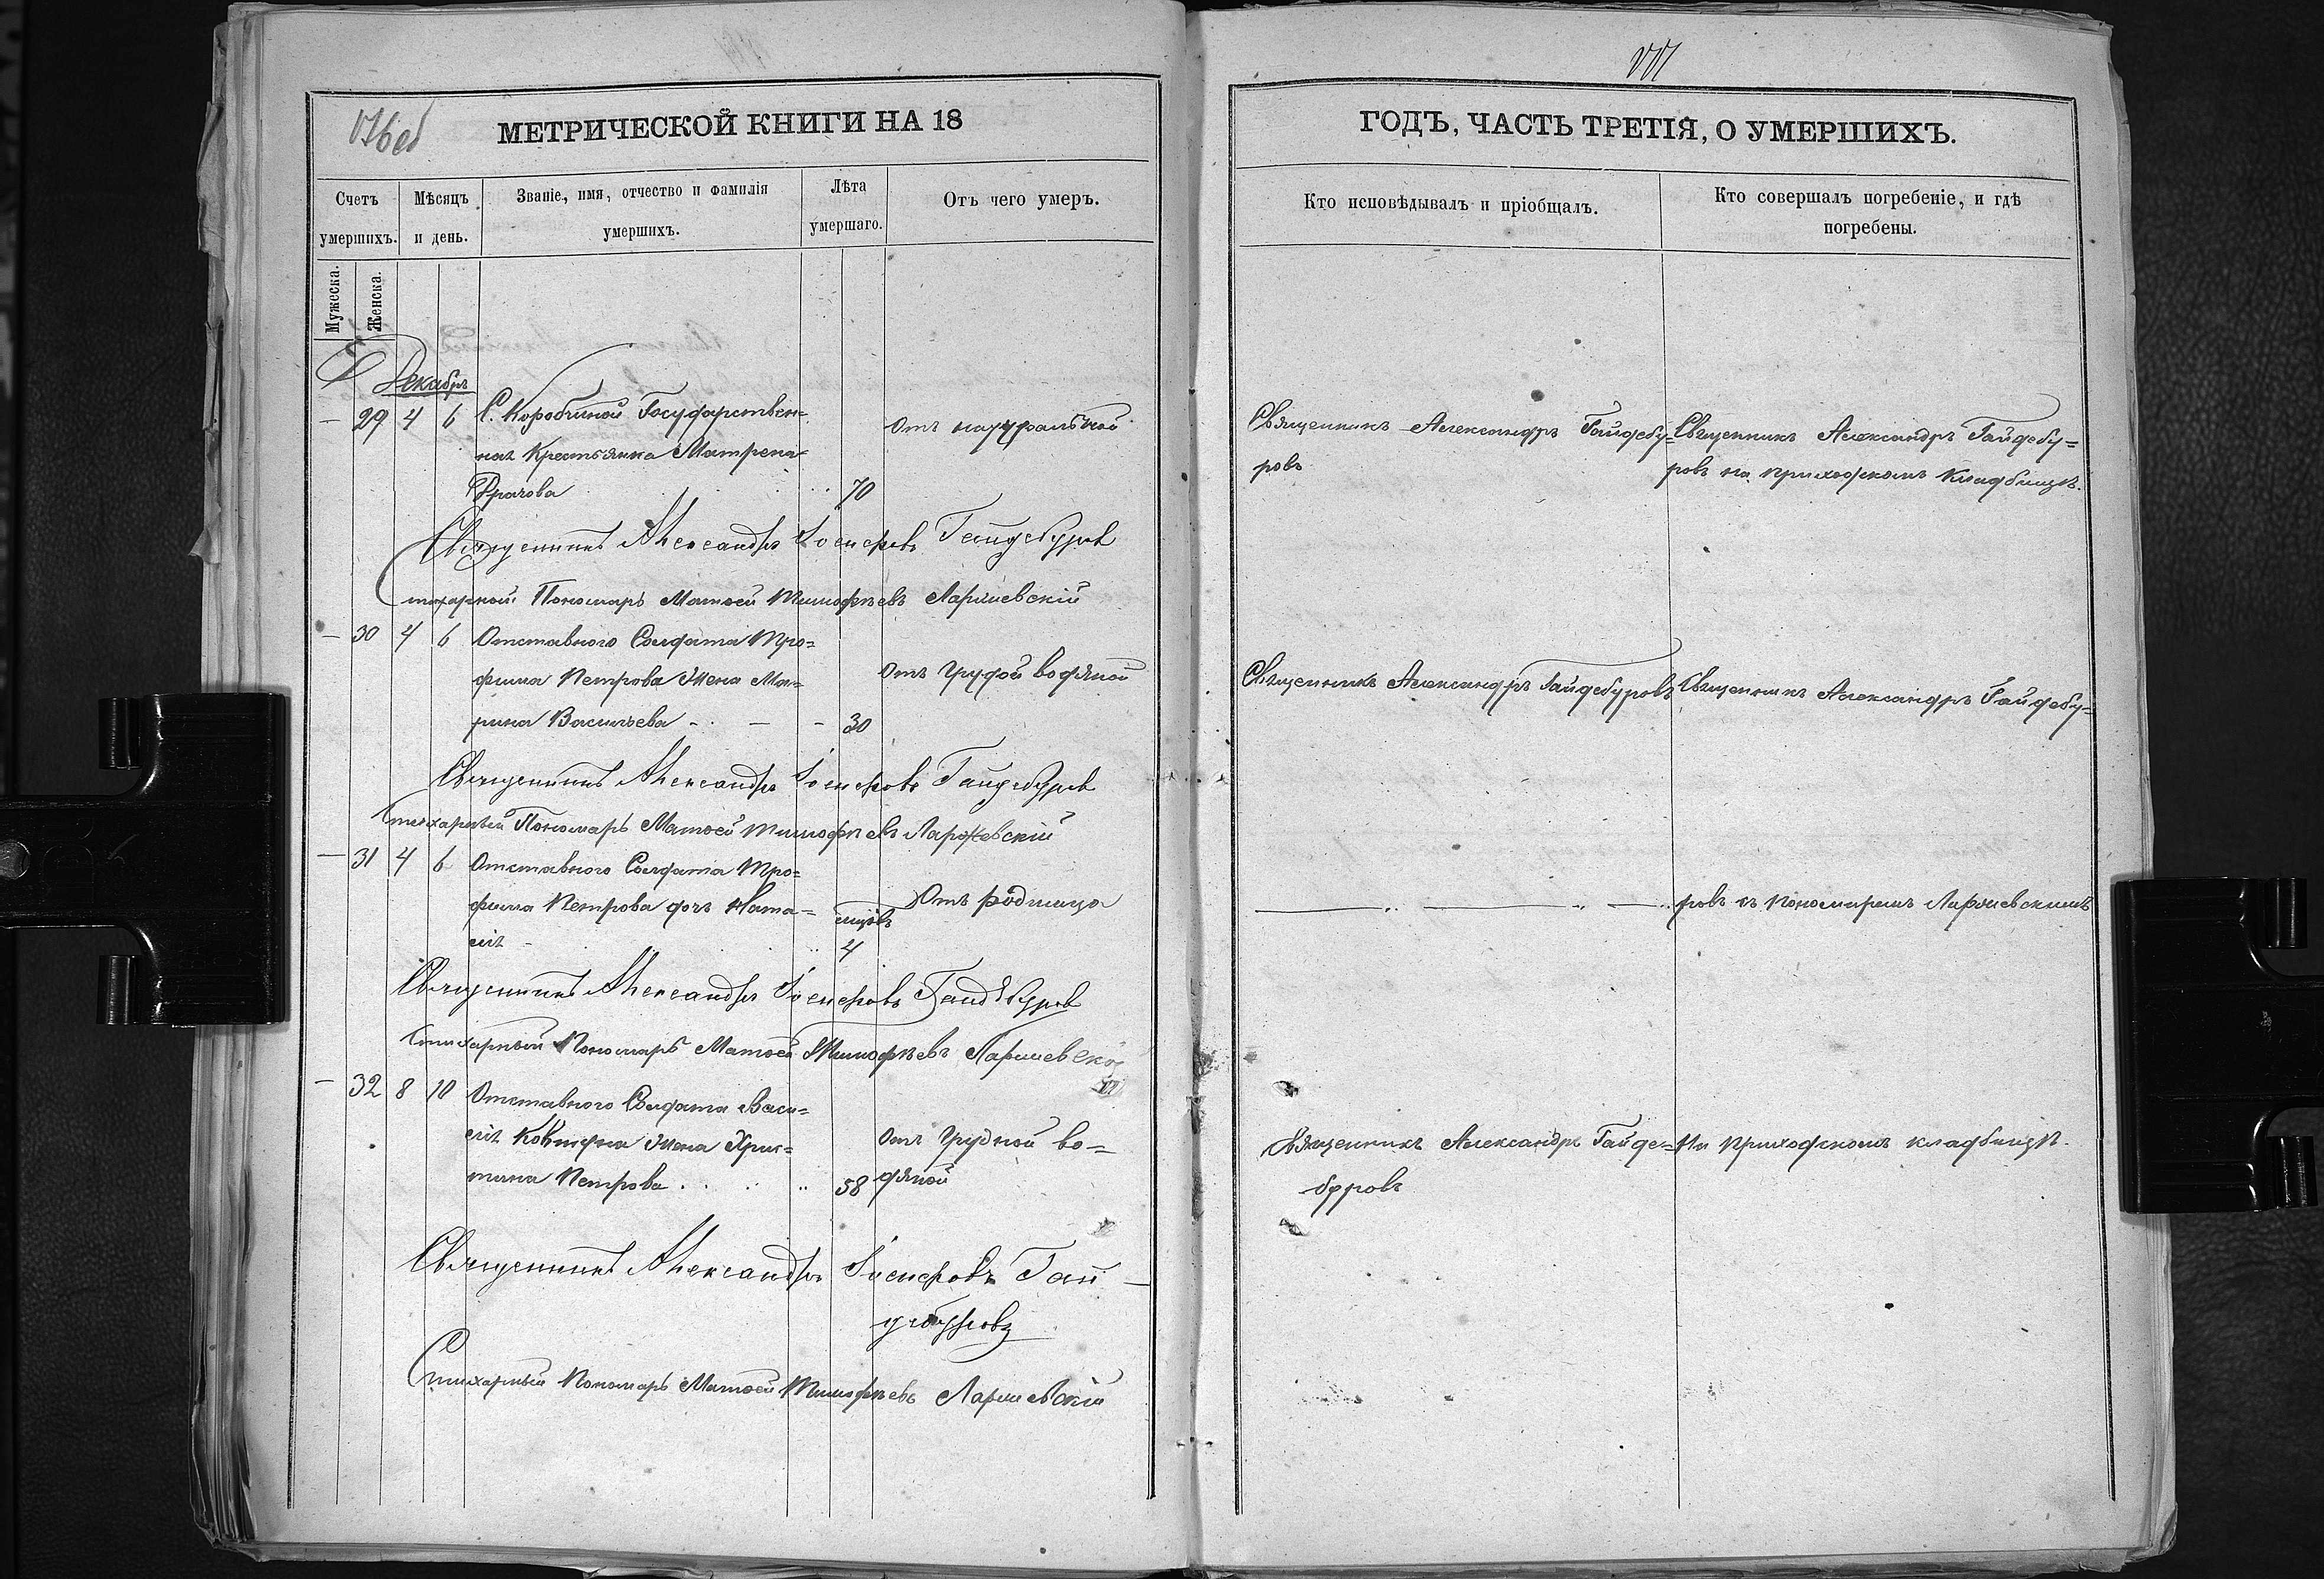 МЕТРИЧЕСКОЙ КНИГИ НА 18
Счетъ умершихъ.
Мѣсяцъ и день.
Званіе, имя, отчество и фамилія умершихъ.
Лѣта умершаго.
Отъ чего умеръ.
Мужеска.
Женска.
Декабрь
— 29 4 6 С. Коробчиной Государствен=
ная Крестьянка Матрена
70
Отъ натуральной
Священникъ Александръ Іосифовъ Гайдебуровъ
Стихарный Пономарь Матѳей Тимофѣевъ
— 30 4 6 Отставного Солдата Тро=
фима Петрова Жена Ма=
рина Васильева - . — - 30
Отъ Грудой водяной
Священникъ Александръ Іосифовъ Гайдебуровъ
Стихарный Пономарь Матѳей Тимофѣевъ
— 31 4 6 Отставного Солдата Тро=
фима Петрова дочь Ната=
лія - 4
Отъ родимца
Священникъ Александръ Іосифовъ Гайдебуровъ
Стихарный Пономарь Матѳей Тимофѣевъ
— 32 8 10 Отставного Солдата Васи=
лія Жена Хрис=
тина Петрова . . . .. 58
Отъ Грудной во=
дяной
Священникъ Александръ Іосифовъ Гай—
дебуровъ
Стихарный Пономарь Матѳей Тимофѣевъ
ГОДЪ, ЧАСТЬ ТРЕТІЯ, О УМЕРШИХЪ.
Кто исповѣдывалъ и пріобщалъ.
Кто совершалъ погребеніе, и гдѣ погребены.
Священникъ Александръ Гайдебу=
ровъ
Священникъ Александръ Гайдебу=
ровъ на приходскомъ кладбищѣ.
Священникъ Александръ Гайдебуровъ
Священникъ Александръ Гайдебу=
ровъ съ пономаремъ
Священникъ Александръ Гайде=
буровъ
На приходскомъ кладбищѣ.